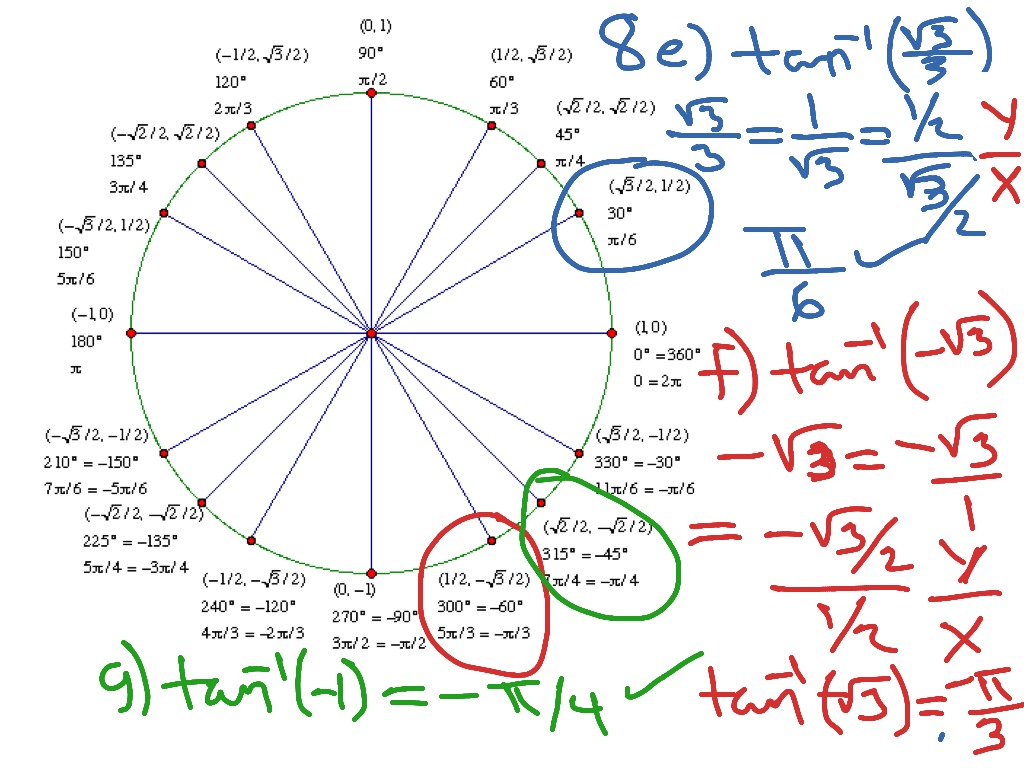 (0, 1)
90°
π/2
(-1/2, √3/2)
120°
2π/3
(1/2, √3/2)
60°
π/3
(-√2/2, √2/2)
135°
3π/4
(√2/2, √2/2)
45°
π/4
(-√3/2, 1/2)
150°
5π/6
(√3/2, 1/2)
30°
π/6
(-1, 0)
180°
π
(1, 0)
0° = 360°
0 = 2π
(-√3/2, -1/2)
210° = -150°
7π/6 = -5π/6
(√3/2, -1/2)
330° = -30°
11π/6 = -π/6
(-√2/2, -√2/2)
225° = -135°
5π/4 = -3π/4
(√2/2, -√2/2)
315° = -45°
7π/4 = -π/4
(-1/2, -√3/2)
240° = -120°
4π/3 = -2π/3
(0, -1)
270° = -90°
3π/2 = -π/2
(1/2, -√3/2)
300° = -60°
5π/3 = -π/3
8e) tan⁻¹(√3/3)
√3/3 = 1/√3 = 1/2 / √3/2 Y/X
π/6
f) tan⁻¹(-√3)
-√3 = -√3/1
= -√3/2 / 1/2 Y/X
tan⁻¹(-√3) = -π/3
g) tan⁻¹(-1) = -π/4